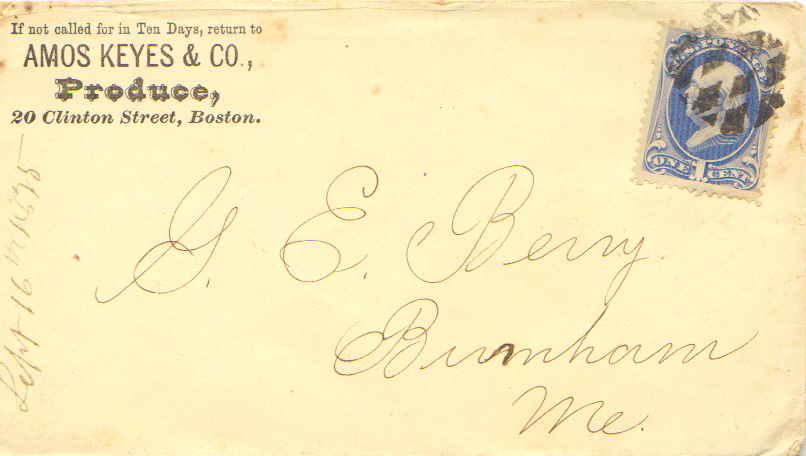 If not called for in Ten Days, return to
AMOS KEYES & CO.,
Produce,
20 Clinton Street, Boston.
U.S. POSTAGE
ONE 1 CENT
G. E. Berry.
Burnham
Me.
Sept 16th